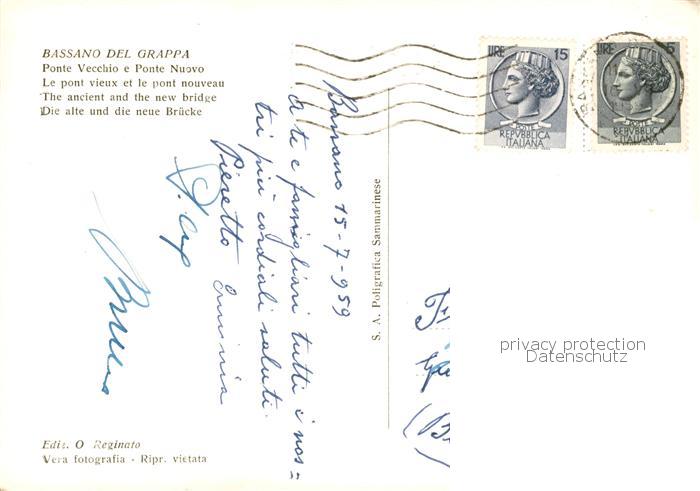 BASSANO DEL GRAPPA
Ponte Vecchio e Ponte Nuovo
Le pont vieux et le pont nouveau
The ancient and the new bridge
Die alte und die neue Brücke
LIRE 15
POSTE
REPVBBLICA
ITALIANA
LIRE 5
POSTE
REPVBBLICA
ITALIANA
Bassano 15-7-959
a te e famigliari tutti i nos=
tri più cordiali saluti.
Pieretto Erminia
S. A. Poligrafica Sammarinese
privacy protection
Datenschutz
Ediz. O Reginato
Vera fotografia - Ripr. vietata